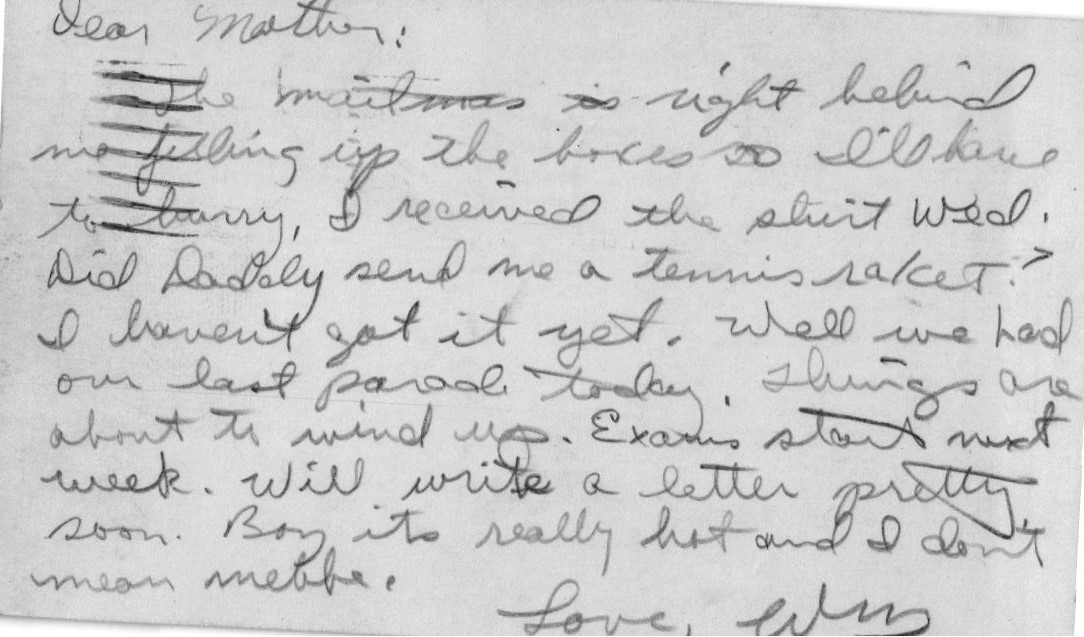 Dear Mother:
The mailman is right behind
me filling up the boxes so I'll have
to hurry, I received the shirt Wed.
Did Daddy send me a tennis raket?
I haven't got it yet. Well we had
our last parade today. Things are
about to wind up. Exams start next
week. Will write a letter pretty
soon. Boy its really hot and I don't
mean mebbe.
Love,